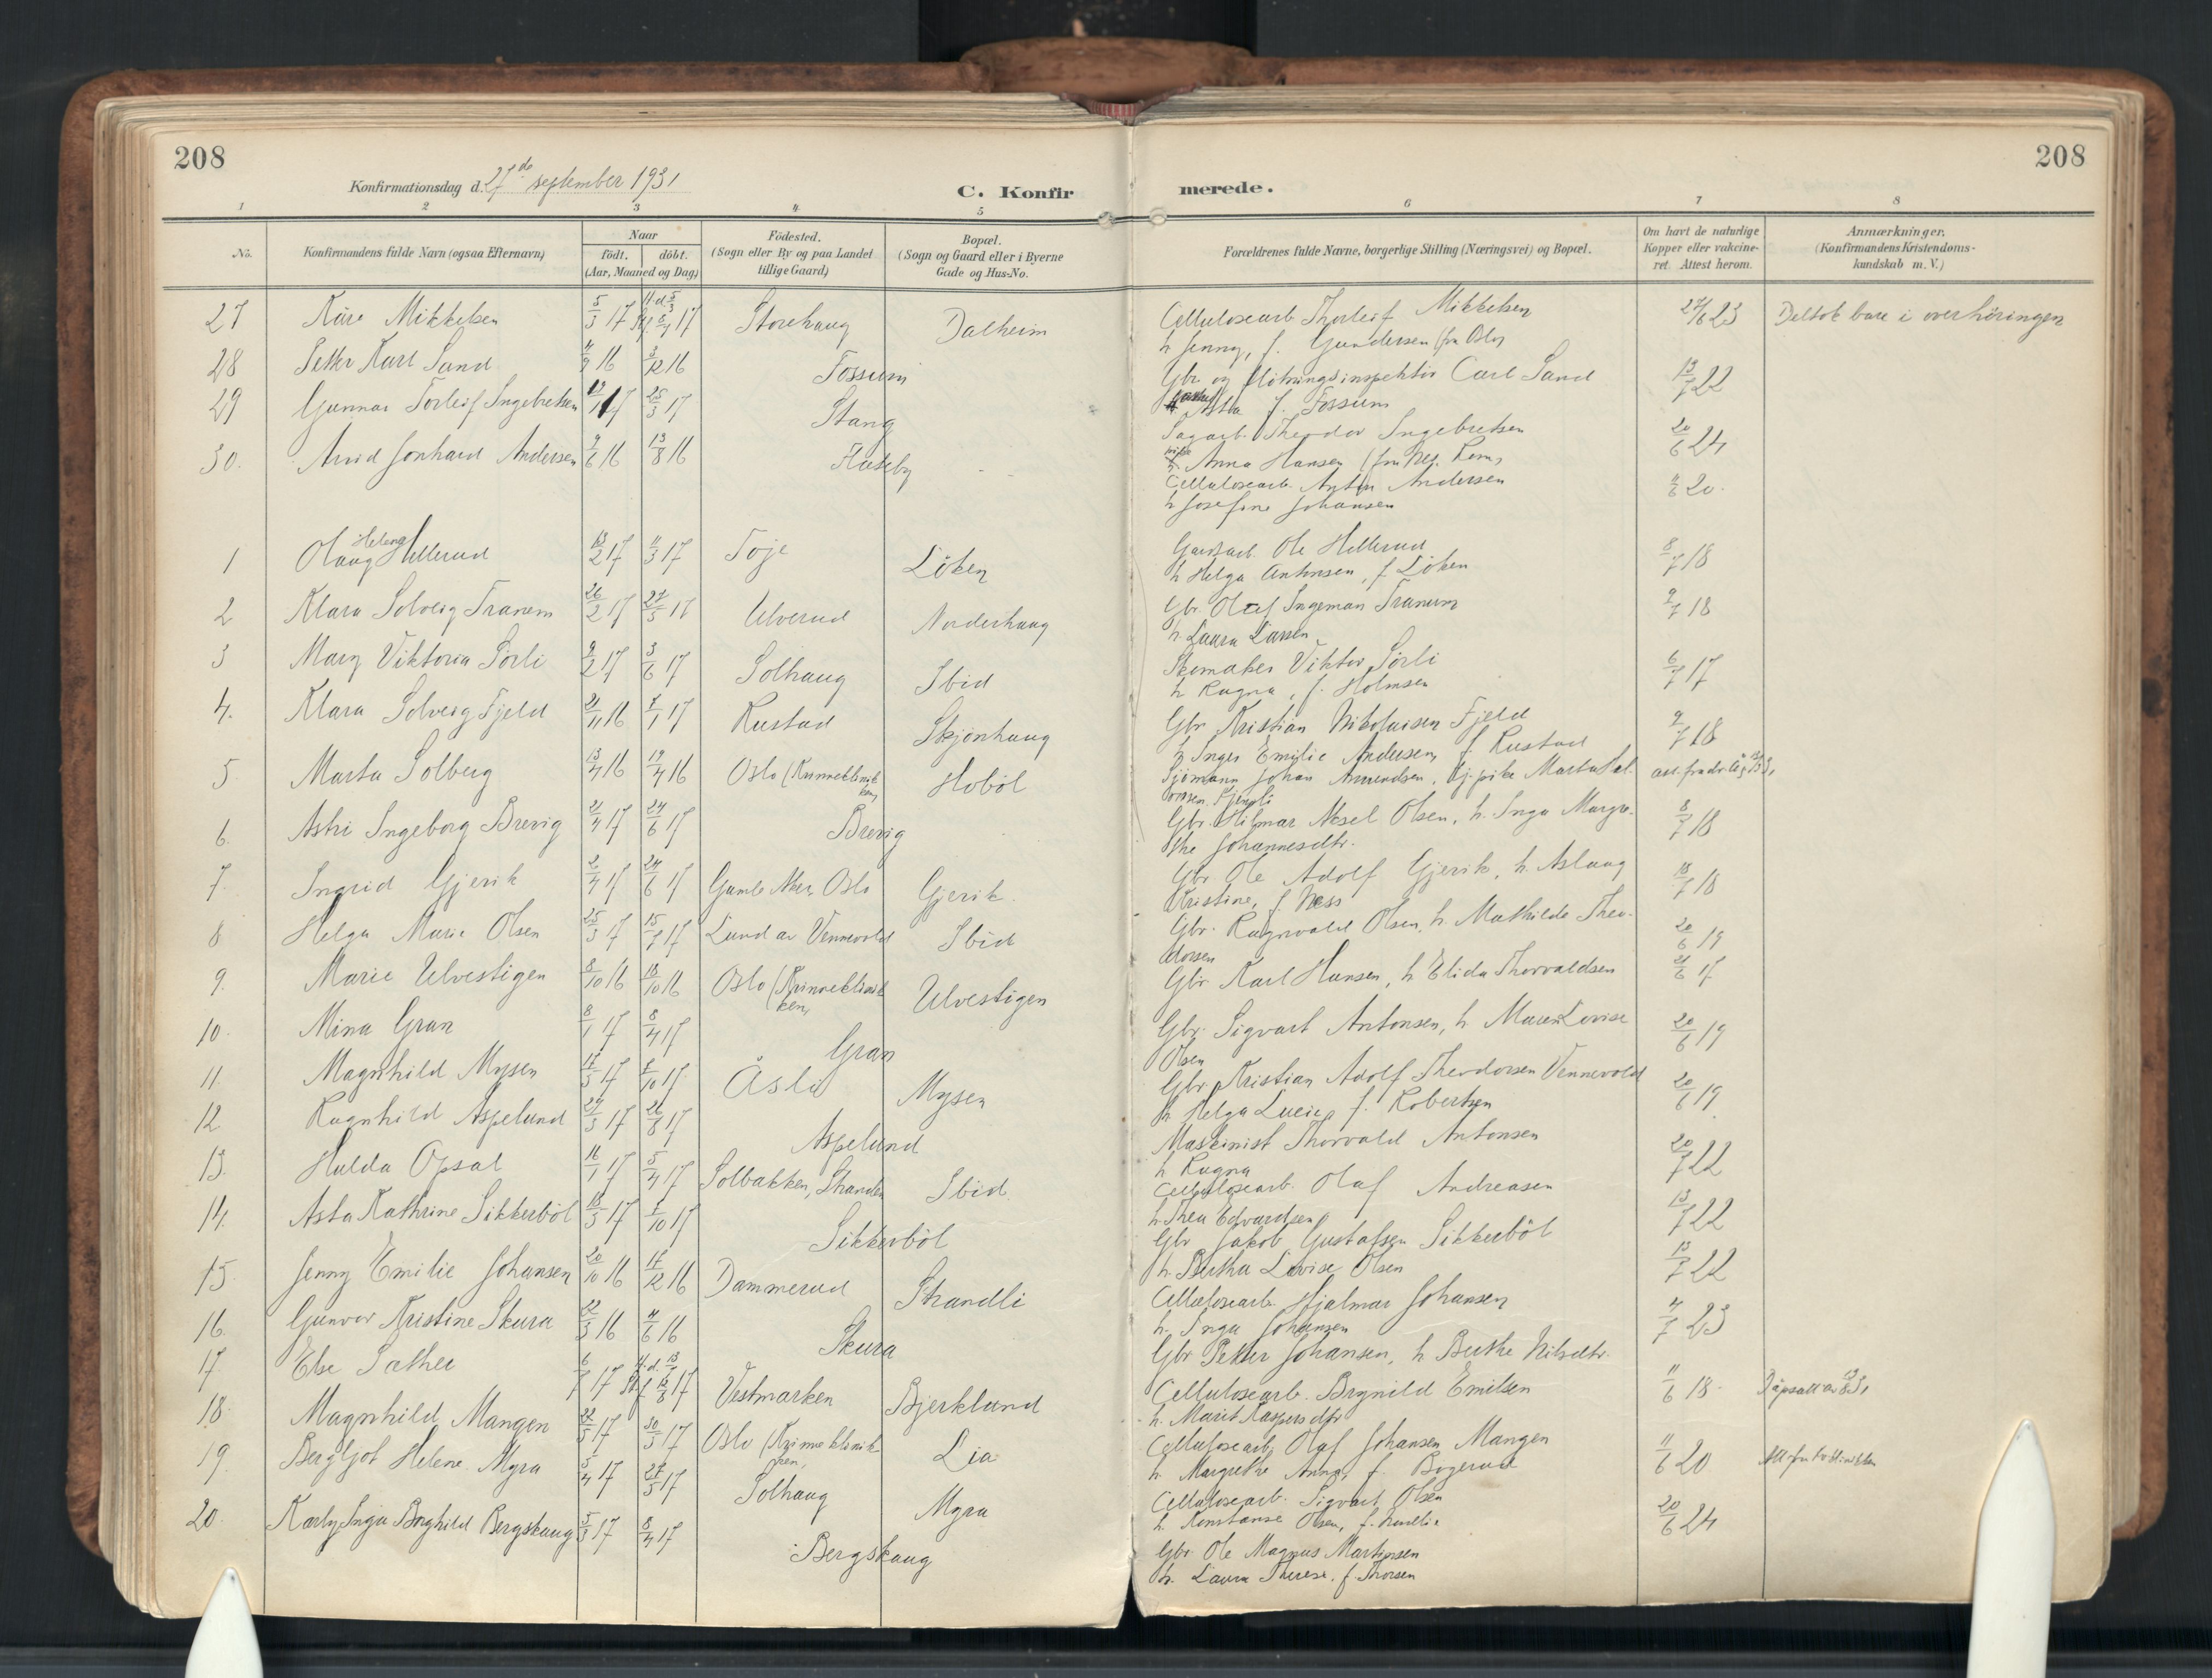 208
208
Konfirmationsdag d. 27de september 1931
C. Konfirmerede.
1 2 3 4 5 6 7 8
No.
Konfirmandens fulde Navn (ogsaa Efternavn)
Naar
födt. döbt.
(Aar, Maaned og Dag)
Födested.
(Sogn eller By og paa Landet
tillige Gaard)
Bopæl.
(Sogn og Gaard eller i Byerne
Gade og Hus-No.
Forældrenes fulde Navne, borgerlige Stilling (Næringsvei) og Bopæl.
Om havt de naturlige
Kopper eller vakcine-
ret. Attest herom.
Anmærkninger.
(Konfirmandens Kristendoms-
kundskab m. V.)
27 Kåre Mikkelsen 5/3 17 Storehaug Dalheim Cellulosearb. Thorleif Mikkelsen 27/6 23 Deltok bare i overhöringen
h. Jenny, f. Gundersen (fra Oslo)
28 Petter Karl Sand 16 16 Fossum Gbr. og flötningsinspektör Carl Sand 13/7 22
Asta f. Fossum
29 Gunnar Torleif Ingebretsen 17 25/3 17 Stang Sagarb. Theodor Ingebretsen 20/6 24
Anna Hansen
30. Arvid Jonhard Andersen 9/6 16 13/8 16 Huseby Cellulosearb. Anton Andersen 20
h Josefine Johansen
1 Olaug Helene Hellerud 13/2 17 11/3 17 Toje Löken Gardsarb. Ole Hellerud 8/7 18
h Helga Antonsen, f. Löken
2 Klara Solveig Tranem 26/2 17 27/5 17 Ulverud Norderhaug Gbr. Olaf Ingeman Tranum 9/7 18
h Laura Larsen
3 Mary Viktoria Sörli 9/2 17 3/6 17 Solhaug Ibid Skomaker Viktor Sörli 6/7 17
h Ragna, f. Holmsen
4. Klara Solveig Fjeld 21/11 16 7/1 17 Rustad Skjönhaug Gbr Kristian Nikolaisen Fjeld 9/7 18
h Inger Emilie Andersen, f. Rustad
5 Marta Solberg 13/4 16 19/4 16 Oslo (Kvinneklinikken) Hoböl Sjömann Johan Amundsen,
6. Astri Ingeborg Brevig 21/4 17 24/6 17 Brevig Gbr. Hilmar Aksel Olsen, h. Inga Margre- 8/7 18
the Johannesdtr.
7. Ingrid Gjerik 2/4 17 24/6 17 Gamle Aker, Oslo Gjerik. Gbr. Ole Adolf Gjerik, h. Aslaug 18/7 18
Kristine, f. Næss
8 Helga Marie Olsen 25/3 17 15/7 17 Lund av Vennevold Ibid Gbr. Ragnvald Olsen, h. Mathilde Theo- 20/6 19
dorsen
9. Marie Ulvestigen 8/10 16 18/10 16 Oslo (Kvinneklinikken) Ulvestigen Gbr Karl Hansen, h Elida Thorvaldsen 21/6 17
10. Mina Gran 8/1 17 8/4 17 Gran Gbr. Sigvart Antonsen, h. Maren Lovise 20/6 19
Olsen
11. Magnhild Mysen 17/5 17 7/10 17 Åsli Mysen Gbr. Kristian Adolf Theodorsen Vennevold 20/6 19
h. Helga Lucie, f. Robertsen
12 Ragnhild Aspelund 27/5 17 26/8 17 Aspelund Maskinist Thorvald Antonsen 20/7 22
h. Ragna
13. Hulda Opsal 16/1 17 5/4 17 Solbakken, Stranden Ibid. Cellulosearb. Olaf Andreasen 13/7 22
h. Thea Edvardsen
14. Asta Kathrine Sikkerböl 15/5 17 7/10 17 Sikkerböl Gbr Jakob Gustafsen Sikkerböl 13/7 22
h. Bertha Lovise Olsen
15 Jenny Emilie Johansen 20/10 16 17/12 16 Dammerud Strandli Cellulosearb. Hjalmar Johansen 4/7 23
h. Inga Johansen
16. Gunvor Kristine Skura 22/3 16 4/6 16 Skura Gbr Petter Johansen, h Berthe Nilsdtr.
17. Else Sæther 6/7 17 Vestmarken Bjerklund Cellulosearb. Brynild Emilsen 11/6 18
h. Marit Kaspersdtr
18. Magnhild Mangen 22/5 17 30/5 17 Oslo (Kvinneklinikken) Lia Cellulosearb. Olaf Johansen Mangen 11/6 20
h. Margrethe Anna, f. Bøgerud
19. Bergljot Helene Myra 5/4 17 27/5 17 Solhaug Myra Cellulosearb. Sigvart Olsen 20/6 24
h. Konstanse Olsen,
20. Karly Inga Borghild Bergskaug 5/3 17 8/4 17 Bergskaug Gbr. Ole Magnus Martinsen
h. Laura Therese, f. Thorsen